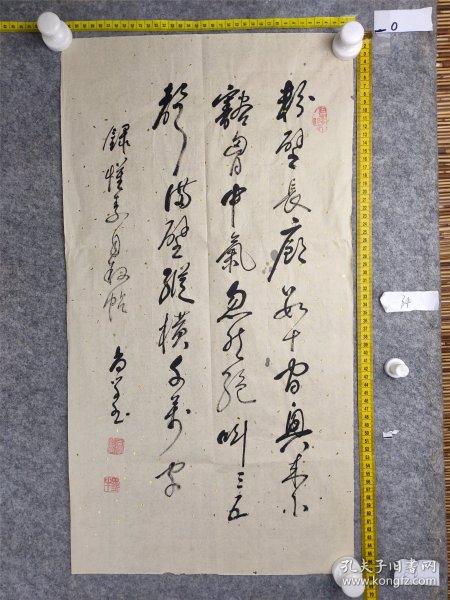 粉壁長廊數十間興來小
豁胸中氣忽然絕叫三五
聲滿壁縱橫千萬字
錄懷素自叙帖
0
34
孔夫子旧书网
www.kongfz.com